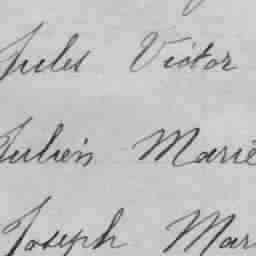 Jules Victor
Julien Marie
Joseph Mar